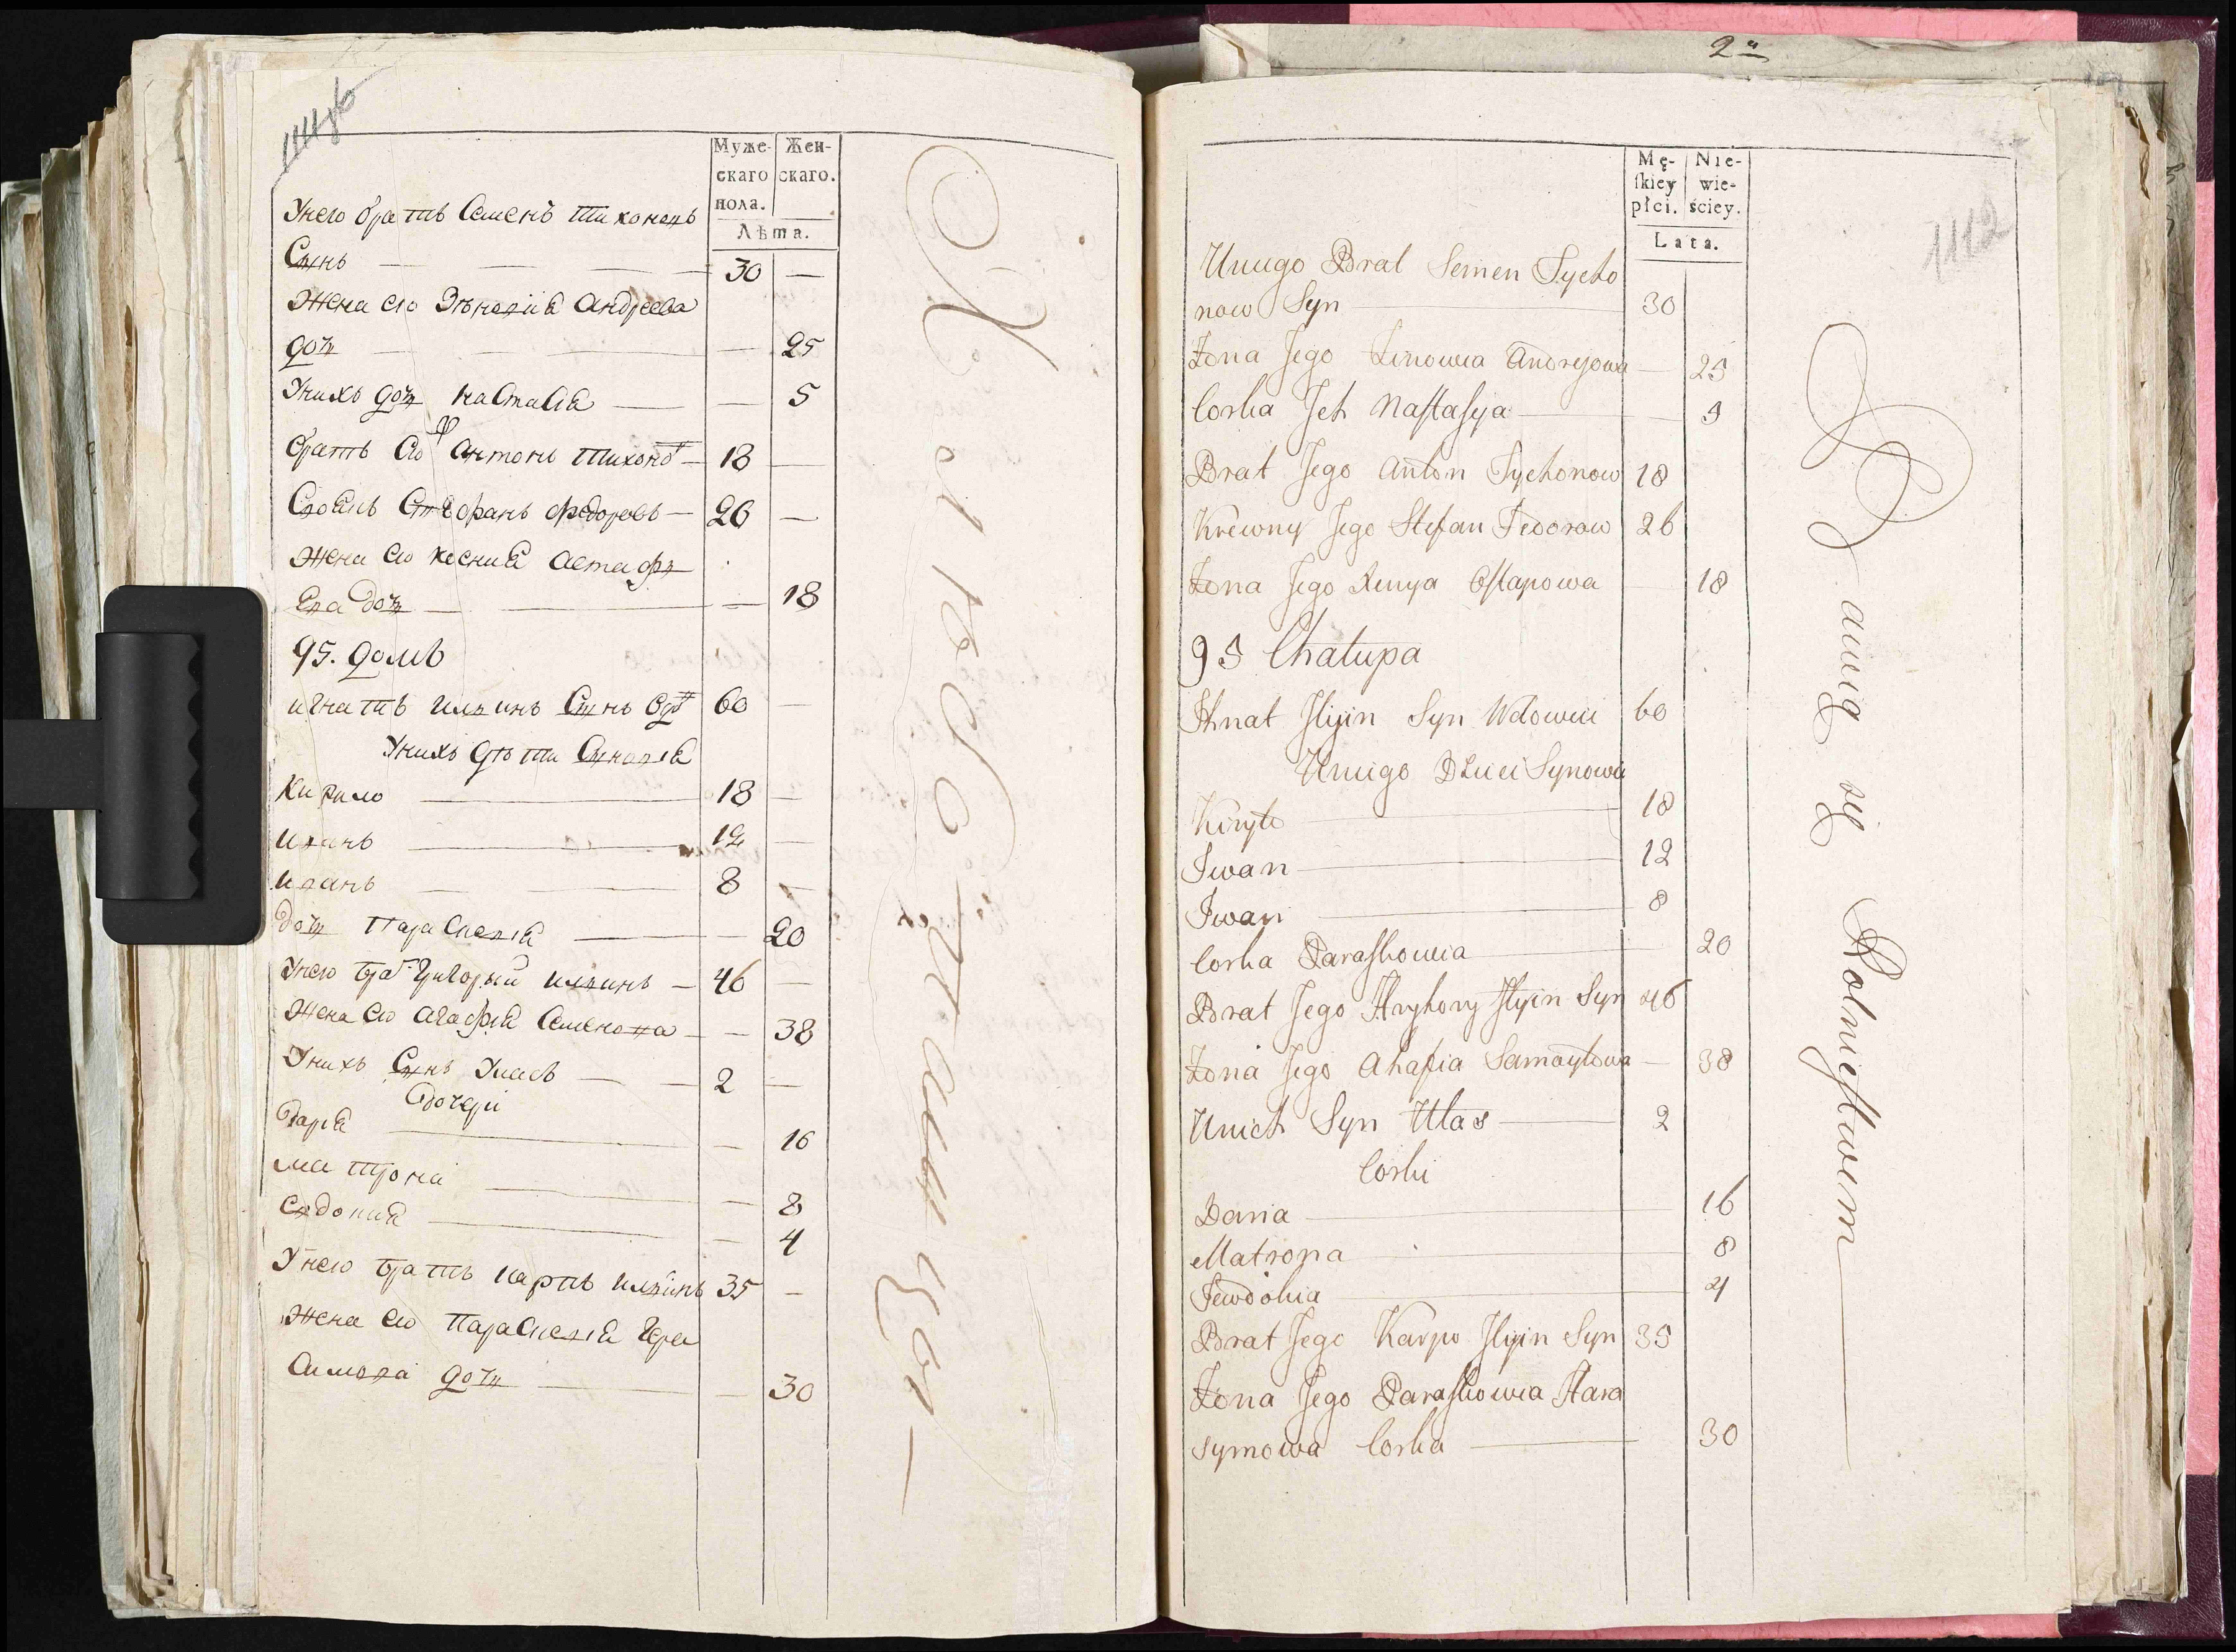 Муже-
скаго
пола.
Жен-
скаго.
Лѣта.
Унего братъ Семенъ тихоновъ
Сынъ — 30 —
Жена его Зѣновія андреева
доч — 25
Унихъ доч настасія — 5
братъ его антонъ тихоно 18 —
Своякъ Стефанъ федоровъ — 26 —
жена его ксения астафь
ева доч — 18
95. домъ
игнатъ ильинъ Сынъ вдо 60 —
Унихъ дѣти Сыновія
Кирило — 18 —
иванъ — 12 —
иванъ — 8 —
доч Парасковія — 20
Унего бра григорый ильинъ — 46 —
жена его агафія Семенова — 38
Унихъ Сынъ Уласъ — 2 —
дочери
дарія — 16
матрона — 8
євдокия — 4
Унего братъ карпъ ильинъ 35 —
жена его Парасковія гера
симова доч — 30
Хлебопашцы
2
1112
Mę-
skiey
płci.
Nie-
wie-
ściey.
Lata.
Uniego Brat Semen Tycho
now Syn — 30
Żona Jego Zinowia Andrejowa — 25
Corka Jch Nastasya — 5
Brat Jego Anton Tychonow 18
Krewny Jego Stefan Fedorow 26
Żona Jego Xenya Ostapowa — 18
95 Chałupa
Jhnat Jlyin Syn Wdowiec 60
Uniego Dzieci Synowie
Kiryło — 18
Jwan — 12
Jwan — 8
Corka Paraskowia — 20
Brat Jego Hryhory Jlyin Syn 46
Żona Jego Ahafia Samoyłowa — 38
Unich Syn Ułas — 2
Corki
Daria — 16
Matrona — 8
Jewdokia — 4
Brat Jego Karpo Jlyin Syn 35
Żona Jego Paraskowia Hara
symowa Corka — 30
Bawią się Rolnictwem